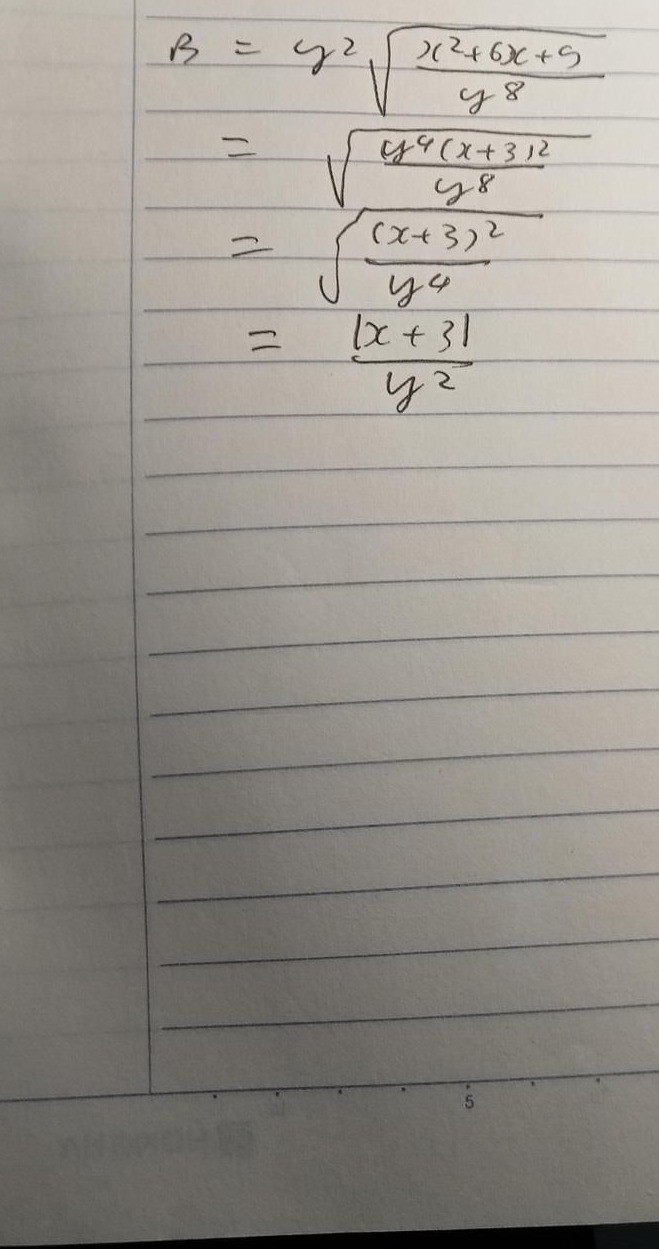 B = y² √((x²+6x+9)/y⁸)
= √((y⁴(x+3)²)/y⁸)
= √((x+3)²/y⁴)
= |x+3|/y²
5